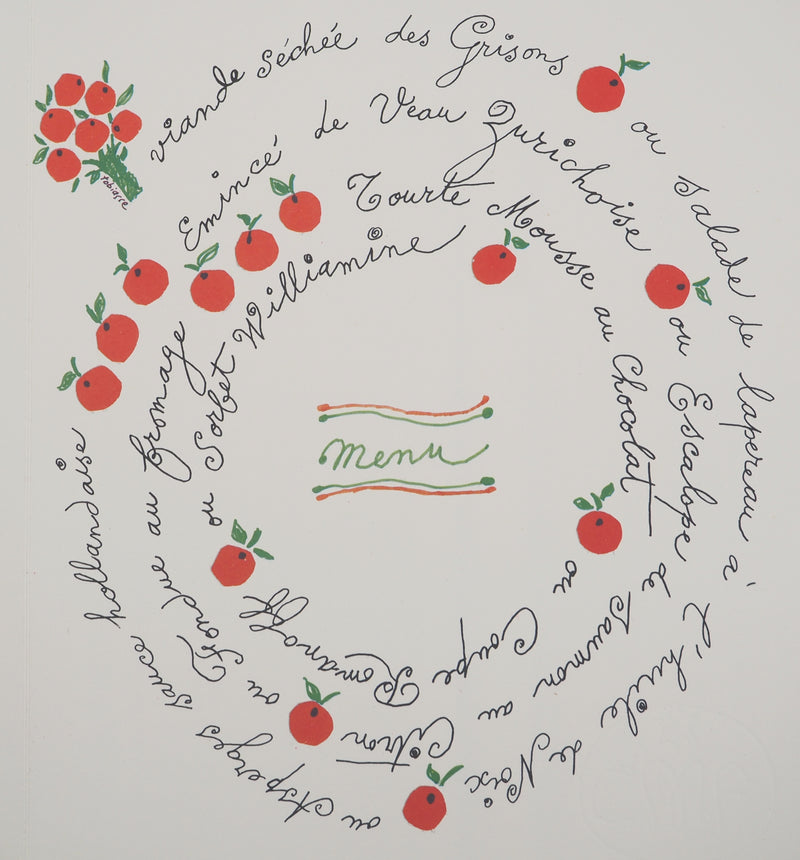 viande séchée des Grisons
ou salade de lapereau à l'huile de Noix
ou Asperges sauce hollandaise
Emincé de Veau Zurichoise
ou Escalope de saumon au Citron
ou Fondue au fromage
Tourte Mousse au Chocolat
ou Coupe Romanoff
ou Sorbet Williamine
Menu
tobiasse